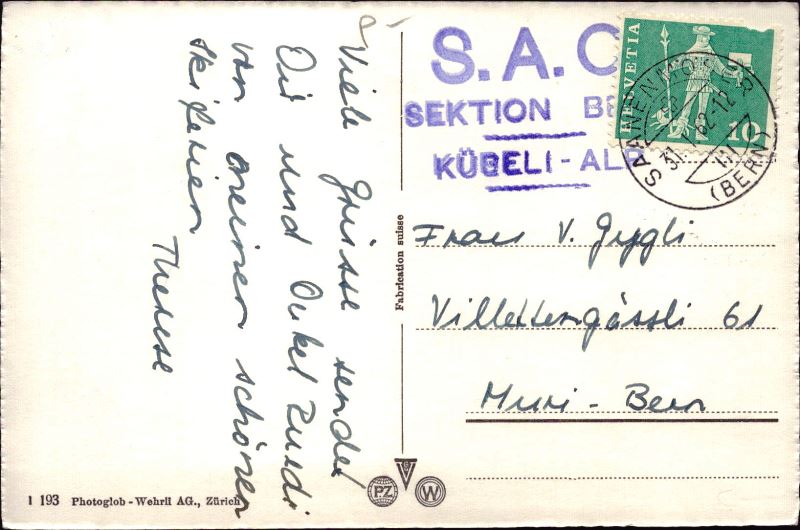 Viele Grüsse sendet
Dir und Onkel Ruedi
von meinen schönen
Skiferien
Therese
S.A.C
SEKTION BE
KÜBELI-ALP
HELVETIA
10
SAANENMÖSER
31.1.62-12
(BERN)
Frau V. Gygli
Villettengässli 61
Muri-Bern
Fabrication suisse
PZ
W
1 193 Photoglob-Wehrli AG., Zürich